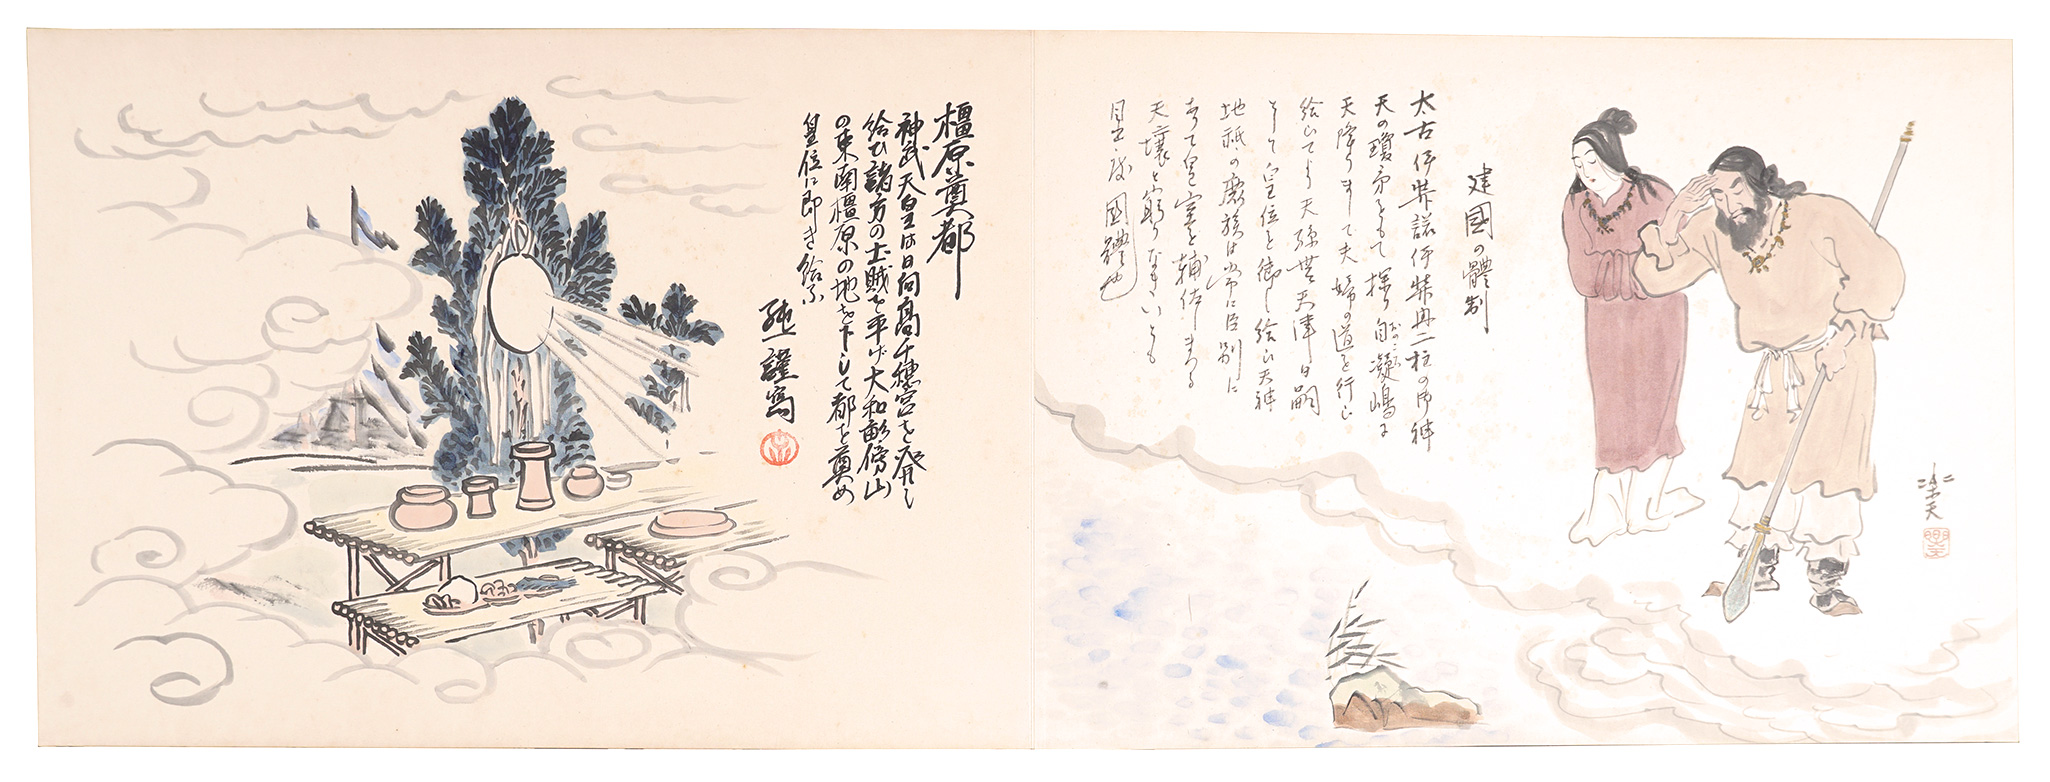 楽天
建國の體制
太古伊弉諾伊弉冉二柱の御神
天の瓊矛をもて探り自凝嶋に
天降りまして夫婦の道を行ひ
給ひてより天孫世々天津日嗣
として皇位を御し給ひ天神
地祇の裔族は常に臣列に
ありて皇室を輔佐しまつる
天壌と窮りなきいとも
目出度國體也
橿原奠都
神武天皇は日向高千穂宮を発し
給ひ諸方の土賊を平げ大和畝傍山
の東南橿原の地を卜して都を奠め
皇位に即き給ふ
謹寫